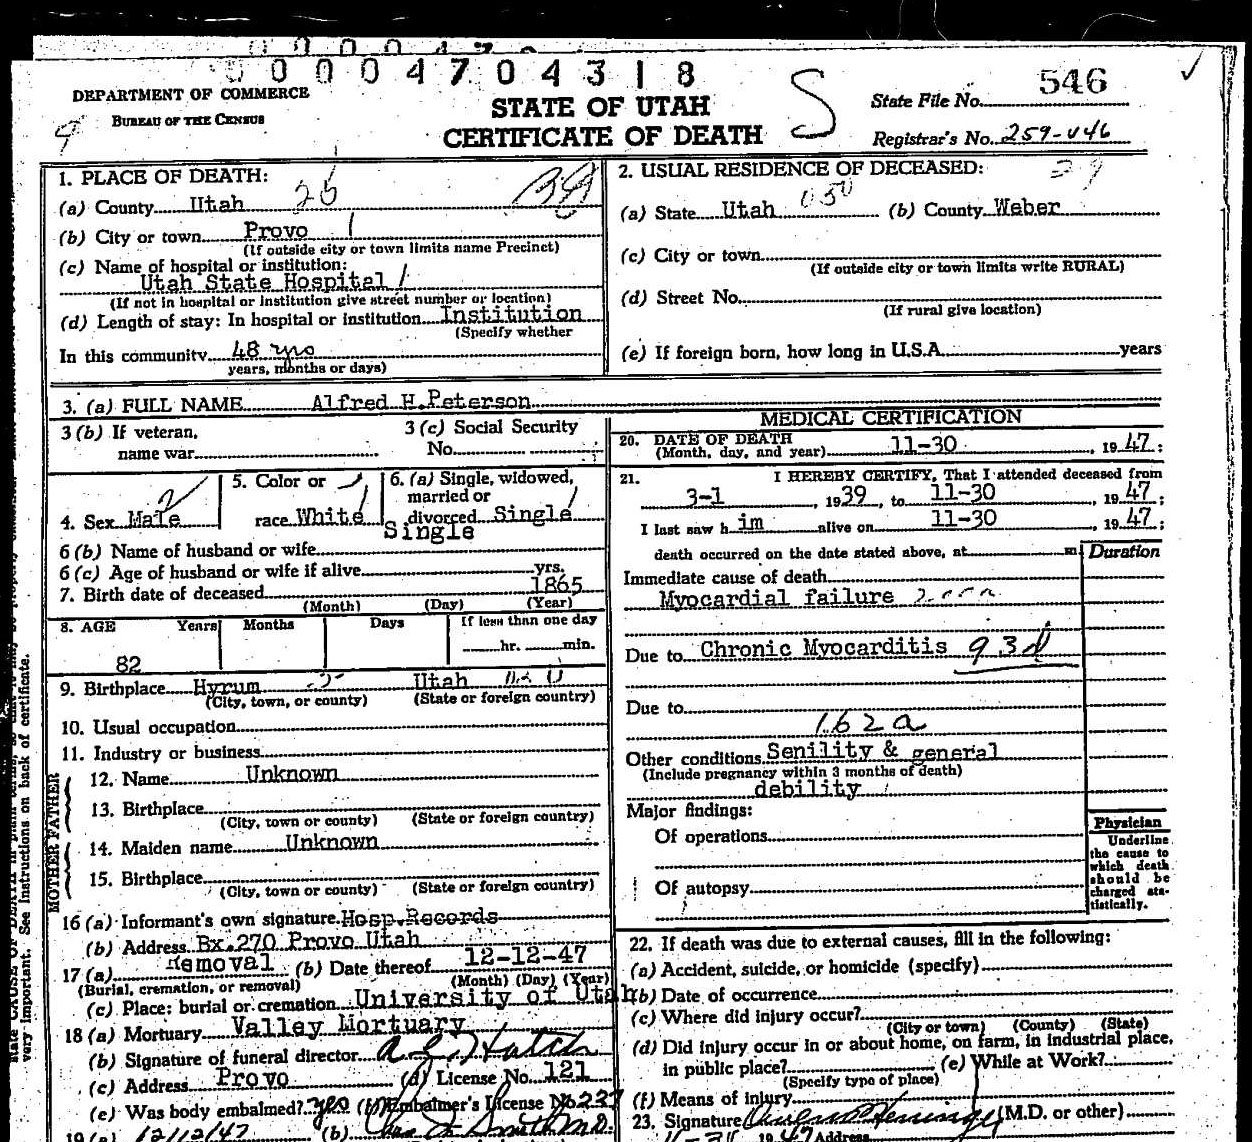 00004704318
DEPARTMENT OF COMMERCE
BUREAU OF THE CENSUS
STATE OF UTAH
CERTIFICATE OF DEATH
S
State File No. 546
Registrar's No. 259-446
1. PLACE OF DEATH:
(a) County Utah 25
(b) City or town Provo 1
(If outside city or town limits name Precinct)
(c) Name of hospital or institution:
Utah State Hospital /
(If not in hospital or institution give street number or location)
(d) Length of stay: In hospital or institution Institution
(Specify whether
In this community 48 yrs
years, months or days)
2. USUAL RESIDENCE OF DECEASED: 29
(a) State Utah (b) County Weber
(c) City or town
(If outside city or town limits write RURAL)
(d) Street No.
(If rural give location)
(e) If foreign born, how long in U.S.A. years
3. (a) FULL NAME Alfred H.Peterson
3 (b) If veteran,
name war
3 (c) Social Security
No.
4. Sex Male
5. Color or
race White
6. (a) Single, widowed,
married or
divorced Single
Single
6 (b) Name of husband or wife
6 (c) Age of husband or wife if alive yrs.
7. Birth date of deceased 1865
(Month) (Day) (Year)
8. AGE Years Months Days If less than one day
hr. min.
82
9. Birthplace Hyrum Utah
(City, town, or county) (State or foreign country)
10. Usual occupation
11. Industry or business
FATHER
12. Name Unknown
13. Birthplace
(City, town or county) (State or foreign country)
MOTHER
14. Maiden name Unknown
15. Birthplace
(City, town or county) (State or foreign country)
16 (a) Informant's own signature Hosp.Records
(b) Address Bx.270 Provo Utah
17 (a) Removal (b) Date thereof 12-12-47
(Burial, cremation, or removal) (Month) (Day) (Year)
(c) Place: burial or cremation University of Utah
18 (a) Mortuary Valley Mortuary
(b) Signature of funeral director
(c) Address Provo (d) License No. 121
(e) Was body embalmed? yes (f) Embalmer's License No. 237
19 (a) 12/12/47 (b)
MEDICAL CERTIFICATION
20. DATE OF DEATH
(Month, day, and year) 11-30, 1947;
21. I HEREBY CERTIFY, That I attended deceased from
3-1 1939, to 11-30, 1947;
I last saw h im alive on 11-30, 1947;
death occurred on the date stated above, at m
Duration
Immediate cause of death
Myocardial failure
Due to Chronic Myocarditis 93d
Due to
162a
Other conditions Senility & general
(Include pregnancy within 3 months of death)
debility
Major findings:
Of operations
Of autopsy
Physician
Underline
the cause to
which death
should be
charged sta-
tistically.
22. If death was due to external causes, fill in the following:
(a) Accident, suicide, or homicide (specify)
(b) Date of occurrence
(c) Where did injury occur?
(City or town) (County) (State)
(d) Did injury occur in or about home, on farm, in industrial place,
in public place? (e) While at Work?
(Specify type of place)
(f) Means of injury
23. Signature (M.D. or other)
1947 Address
very important. See instructions on back of certificate.